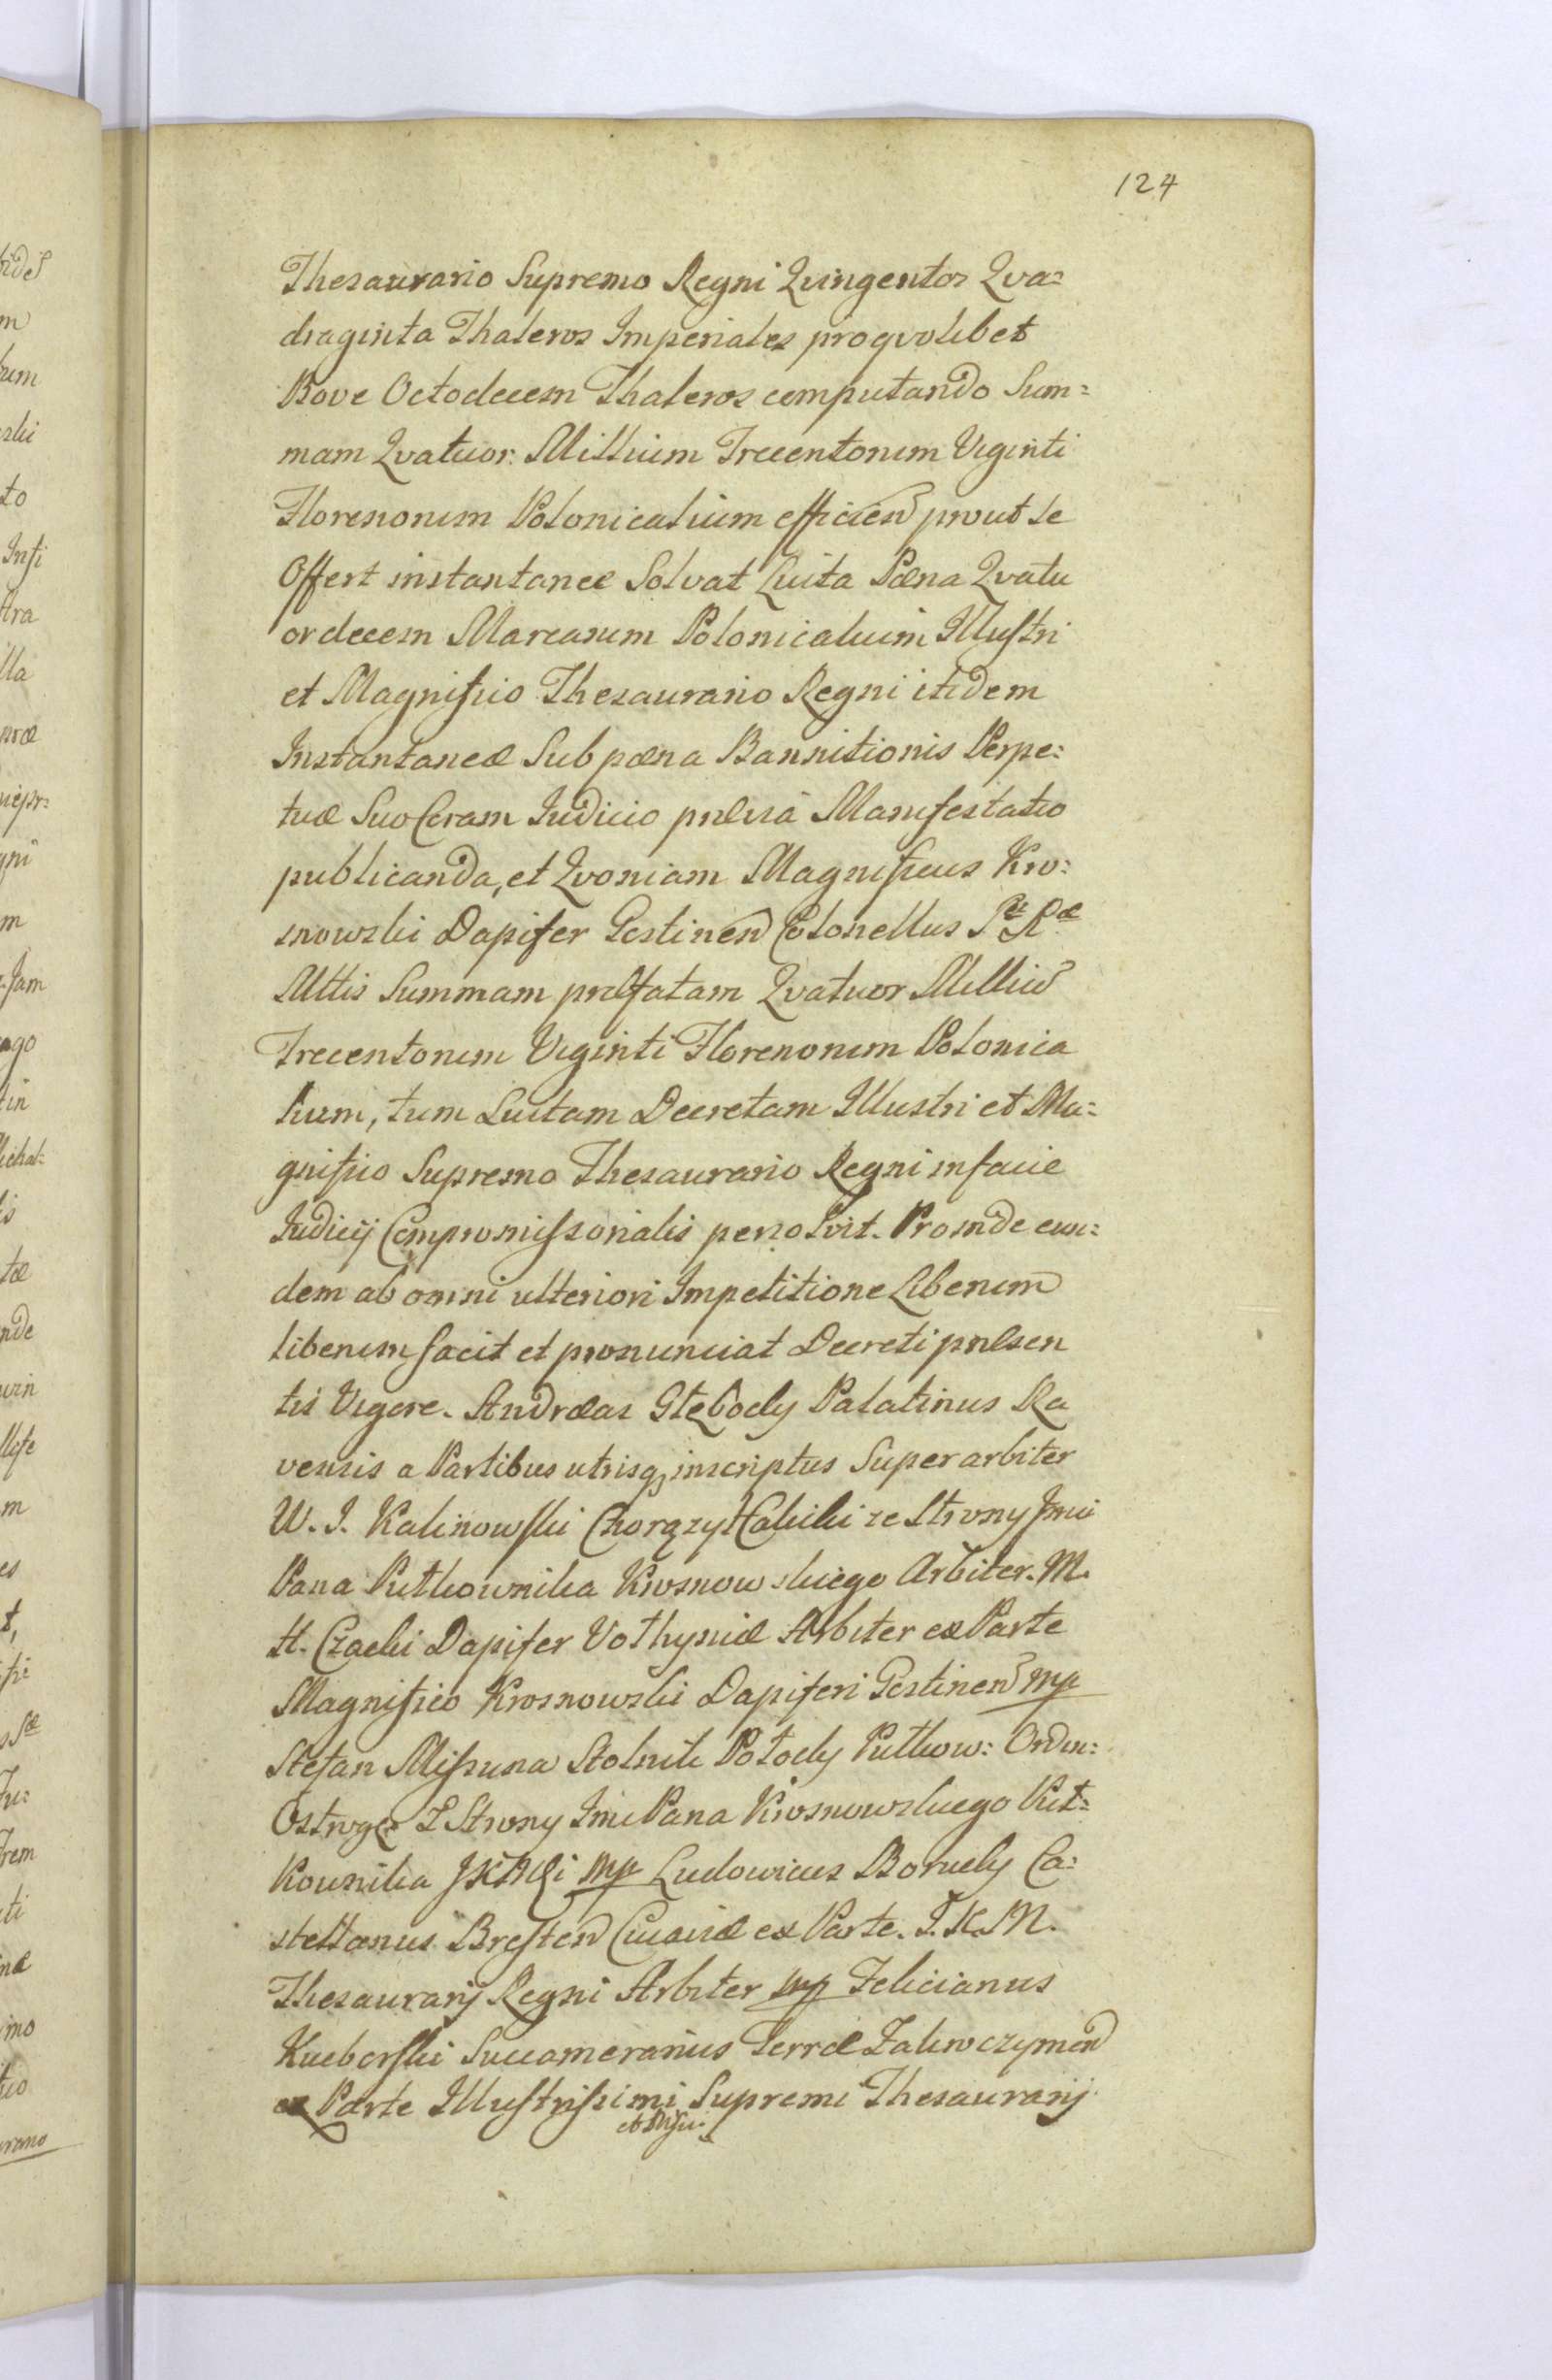 124
Thesaurario Supremo Regni Qvingentos Qva=
draginta Thaleros Imperiales pro qvolibet
Bove Octodecem Thaleros computando Sum=
mam Qvatuor Millium Trecentorum Viginti
Florenorum Polonicalium efficien̄ prout se
Offert instantanee Solvat Luita Pæna Qvatu
ordecem Marcarum Polonicalium Illustri
et Magnifico Thesaurario Regni itidem
Instantaneæ Sub pæna Bannitionis Perpe=
tuæ Suo Coram Iudicio Manifestatio
publicanda, et Qvoniam Magnificus Kro=
snowski Dapifer Gostinen̄ Colonellus S. R. Mttis
Summam præfatam Qvatuor Milliū
Trecentorum Viginti Florenorum Polonica
lium, tum Luitam Decretam Illustri et Ma=
gnifico Supremo Thesaurario Regni in facie
Iudicij Compromissorialis persolvit. Proinde eun=
dem ab omni ulteriori Impetitione Liberum
liberum facit et pronunciat Decreti præsen
tis Vigore. Andræas Głębocky Palatinus Ra
vensis a Partibus utrisq inscriptus Superarbiter
W. I. Kalinowski Chorązy Halicki ze Strony Jmci
Pana Pułkownika Krosnowskiego Arbiter. M.
H. Czacki Dapifer Vołhyniæ Arbiter ex Parte
Magnifico Krosnowski Dapiferi Gostinen̄ mp
Stefan Misuna Stolnik Połocky Pułkow: Ordin:
Ostrogs Z Strony Jmci Pana Krosnowskiego Puł=
kownika JKMći mp Ludowicus Borucky Ca=
stellanus Bresten̄ Cuiaviæ ex Parte. I. K. M.
Thesaurarij Regni Arbiter mp Felicianus
Kucborski Succamerarius Terræ Zakroczymen̄
ex Parte Illustrissimi Supremi Thesaurarij